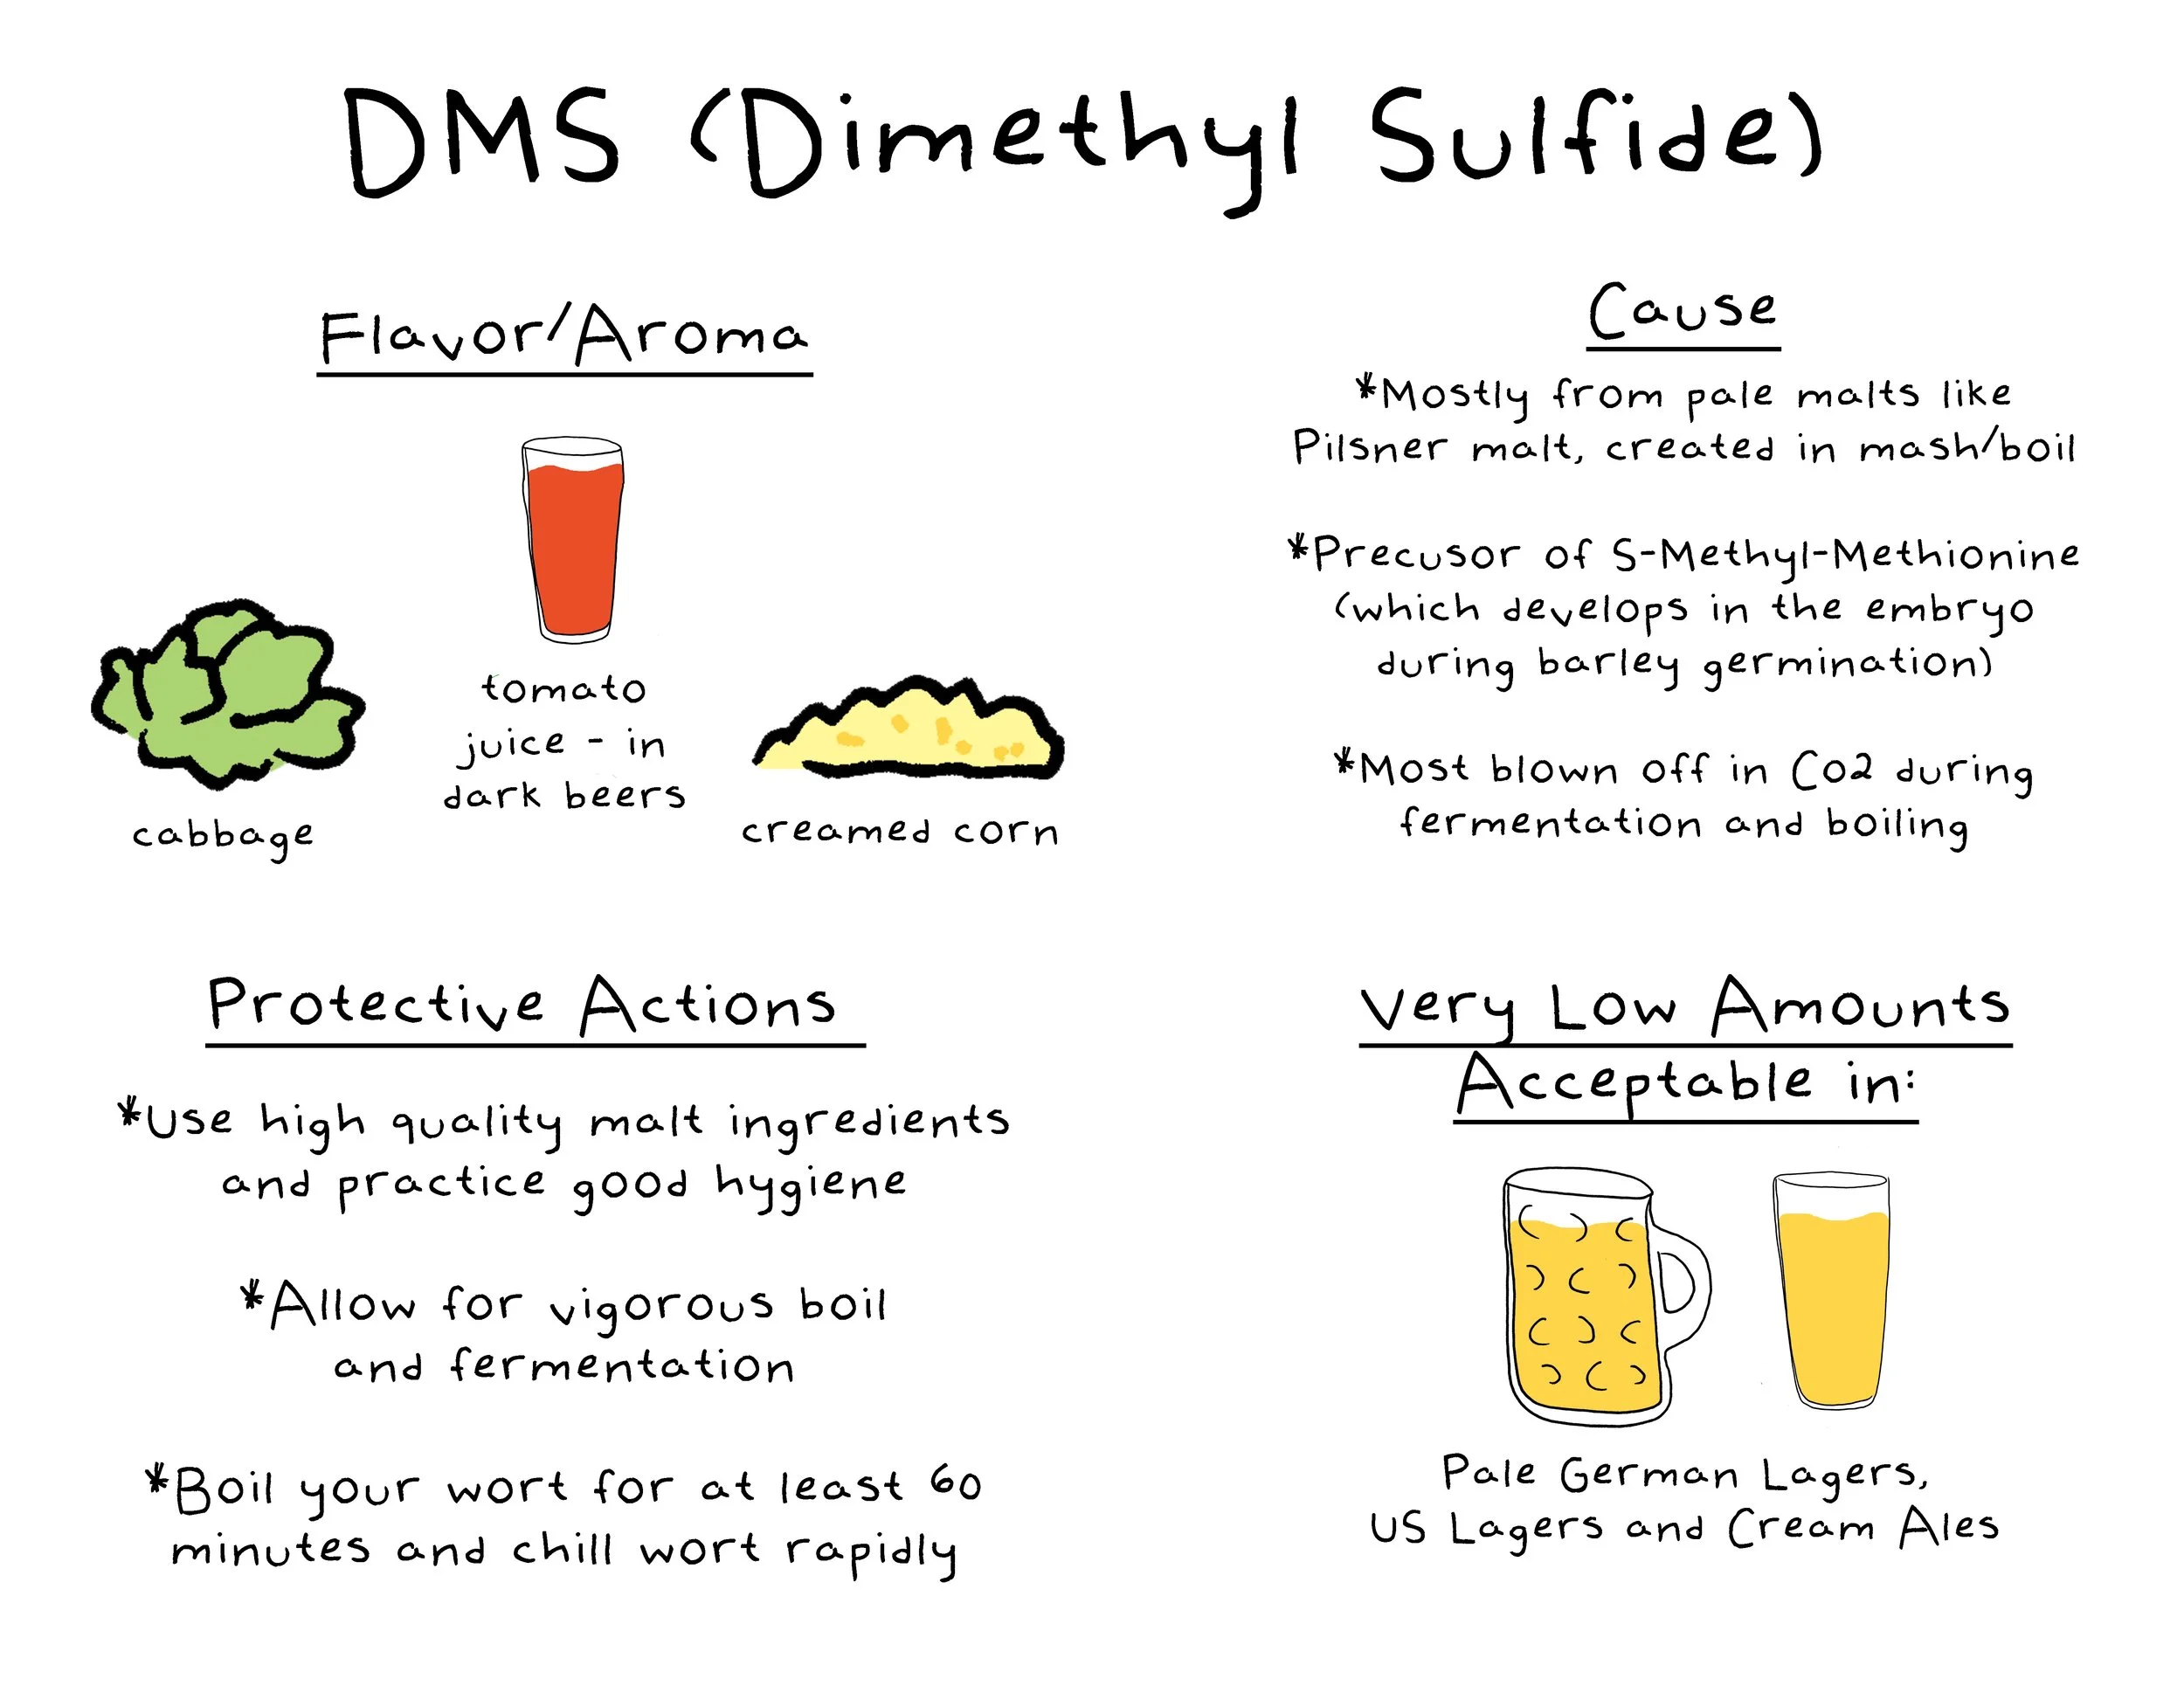 DMS (Dimethyl Sulfide)
Flavor/Aroma
tomato
juice - in
dark beers
cabbage
creamed corn
Cause
*Mostly from pale malts like
Pilsner malt, created in mash/boil
*Precusor of S-Methyl-Methionine
(which develops in the embryo
during barley germination)
*Most blown off in Co2 during
fermentation and boiling
Protective Actions
*Use high quality malt ingredients
and practice good hygiene
*Allow for vigorous boil
and fermentation
*Boil your wort for at least 60
minutes and chill wort rapidly
Very Low Amounts
Acceptable in:
Pale German Lagers,
US Lagers and Cream Ales